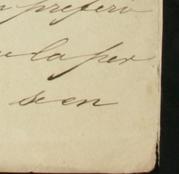 prefirio
la per
se en